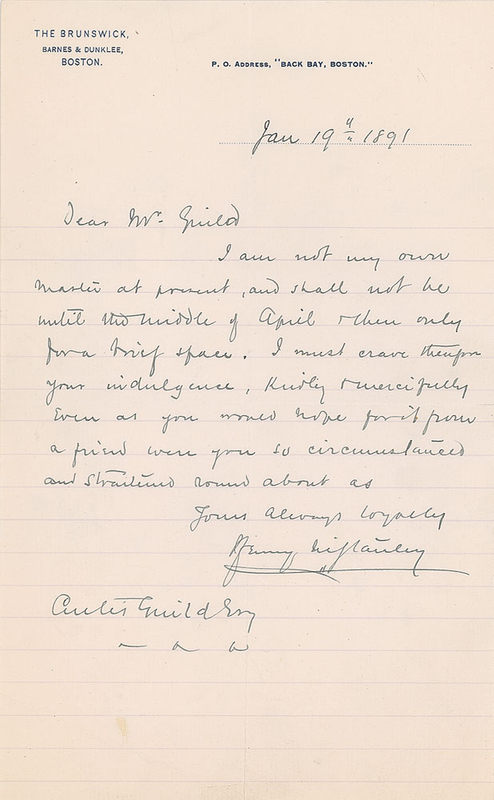 THE BRUNSWICK,
BARNES & DUNKLEE,
BOSTON.
P. O. ADDRESS, "BACK BAY, BOSTON."
Jan 19th 1891
Dear Mr. Guild
I am not my own
master at present, and shall not be
until the middle of April & then only
for a brief space. I must crave therefore
your indulgence, kindly & mercifully
Even as you would hope for it from
a friend were you so circumstanced
and straitened round about as
Yours always loyally
Henry M Stanley
Curtis Guild Esq